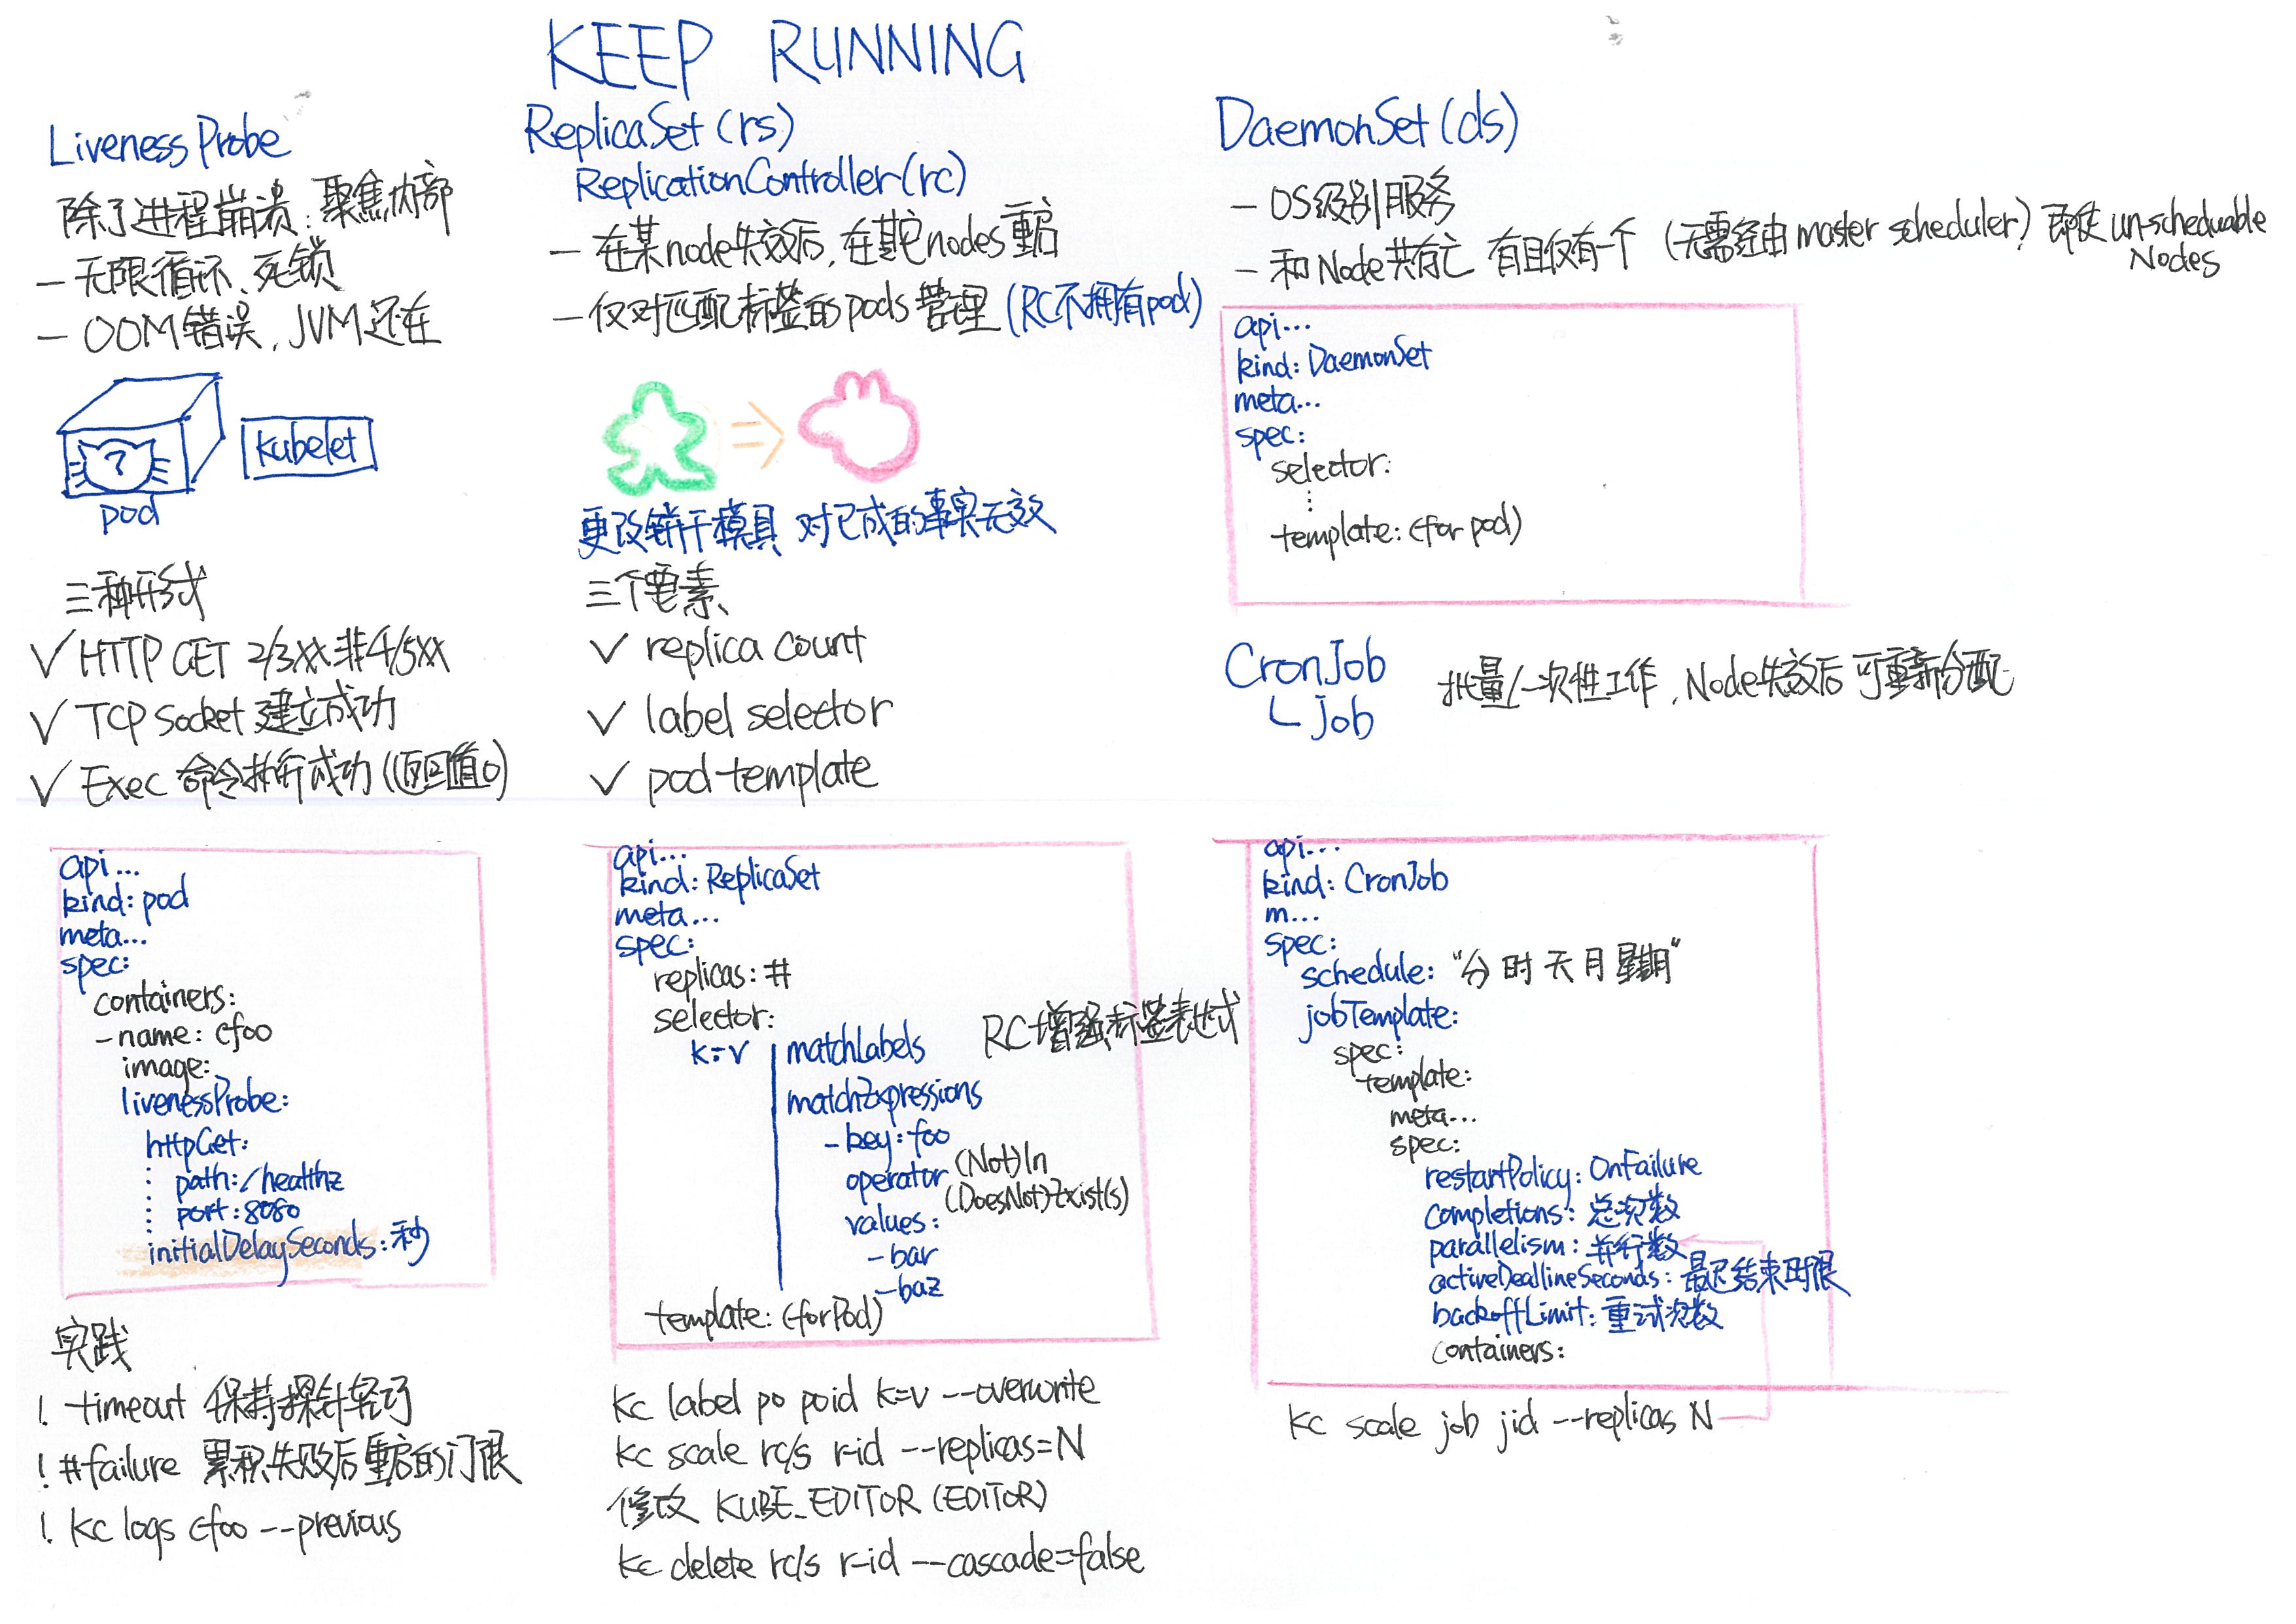 KEEP RUNNING
Liveness Probe
除了进程崩溃:聚焦内部
— 无限循环、死锁
— OOM错误,JVM还在
?
kubelet
pod
三种形式
✓ HTTP GET 2/3xx 非4/5xx
✓ TCP Socket 建立成功
✓ Exec 命令执行成功(返回值0)
api...
kind: pod
meta...
spec:
containers:
- name: cfoo
image:
livenessProbe:
httpGet:
path: /healthz
port: 8080
initialDelaySeconds: 秒
实践
! timeout 保持探针轻巧
! #failure 累积失败后重启的门限
! kc logs cfoo --previous
ReplicaSet (rs)
ReplicationController(rc)
— 在某node失效后,在其它nodes重启
— 仅对匹配标签的pods管理(RC不拥有pod)
更改饼干模具 对已成的事实无效
三个要素
✓ replica count
✓ label selector
✓ pod template
api...
kind: ReplicaSet
meta...
spec:
replicas: #
selector:
k=v matchLabels
RC增强标签表达式
matchExpressions
- key: foo
operator (Not)In
(DoesNot)Exist(s)
values:
- bar
- baz
template: (for Pod)
kc label po poid k=v --overwrite
kc scale rc/s r-id --replicas=N
修改 KUBE_EDITOR (EDITOR)
kc delete rc/s r-id --cascade=false
DaemonSet(ds)
— OS级别服务
— 和Node共存亡 有且仅有一个 (无需经由master scheduler) 即使un-scheduable
Nodes
api...
kind: DaemonSet
meta...
spec:
selector:
⋮
template: (for pod)
CronJob
└ job
批量/一次性工作,Node失效后可重新分配
api...
kind: CronJob
m...
spec:
schedule: "分 时 天 月 星期"
jobTemplate:
spec:
template:
meta...
spec:
restartPolicy: OnFailure
completions: 总次数
parallelism: 并行数
activeDeallineSeconds: 最迟结束时限
backoffLimit: 重试次数
containers:
kc scale job jid --replicas N